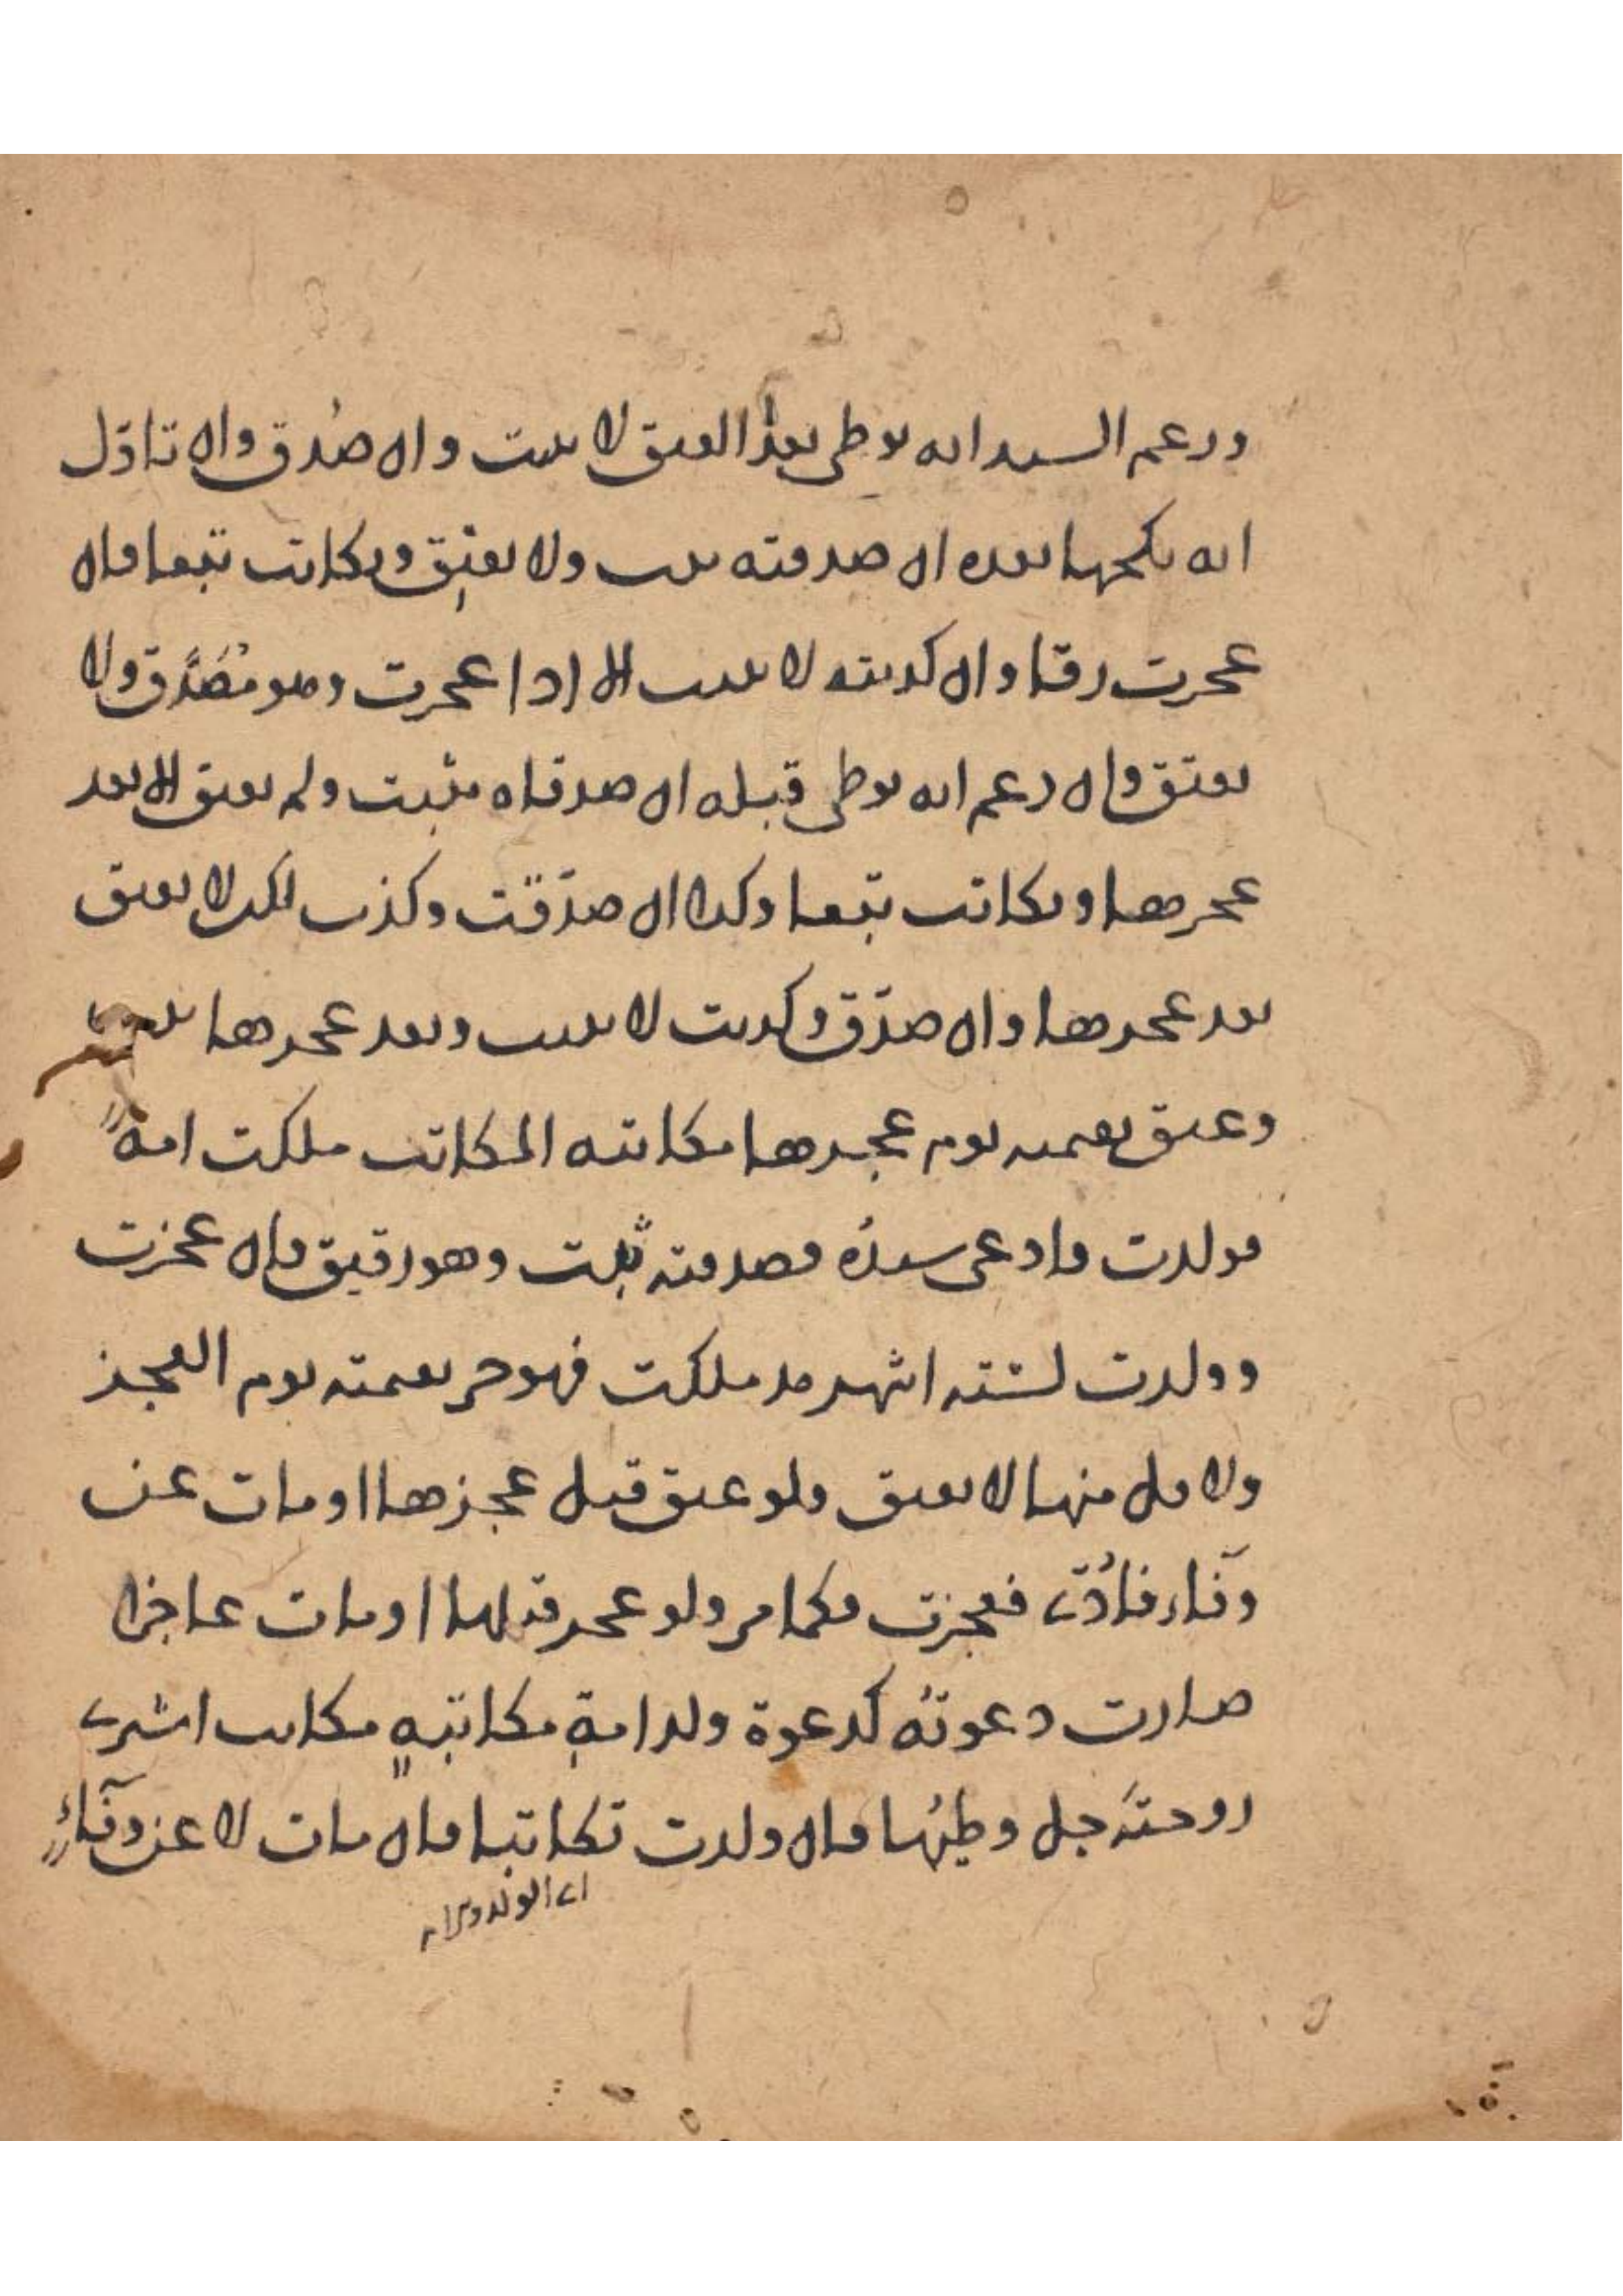 وزعم السيد انه بوطي بعد العتق لا يثبت وان صُدق وان تاوّل
انه نكحها بعده ان صدقته يثبت ولا يعتق ويكاتب تبعا فان
عجزت رقا وان كذبته لا يثبت الا اذا عجزت وهو مُصَدَّق ولا
يعتق وان زعم انه بوطي قبله ان صدقاه يثبت ولم يعتق الا بعد
عجزهما ويكاتب تبعا وكذا ان صدّقت وكذب لكن لا يعتق
بعد عجزها وان صدّق وكذبت لا يثبت وبعد عجزها يثبت
وعتق بقيمته يوم عجزها مكاتبه المكاتب ملكت امةً
فولدت فادعى سيدُه فصدقته ثبت وهو رقيق فان عجزت
وولدت لستة اشهر مذ ملكت فهو حر بقيمته يوم العجز
ولاقل منها لا يعتق ولو عتق قبل عجزها او مات عن
وفاء فادُّى فعجزت فكما مر ولو عجز قبلها او مات عاجزا
صارت دعوتُه كدعوة ولد امةِ مكاتبهٍ مكاتب اشترى
زوجتَه حل وطيُها فان ولدت تكاتبا فان مات لا عن وفآءٍ
اى الولد وامه